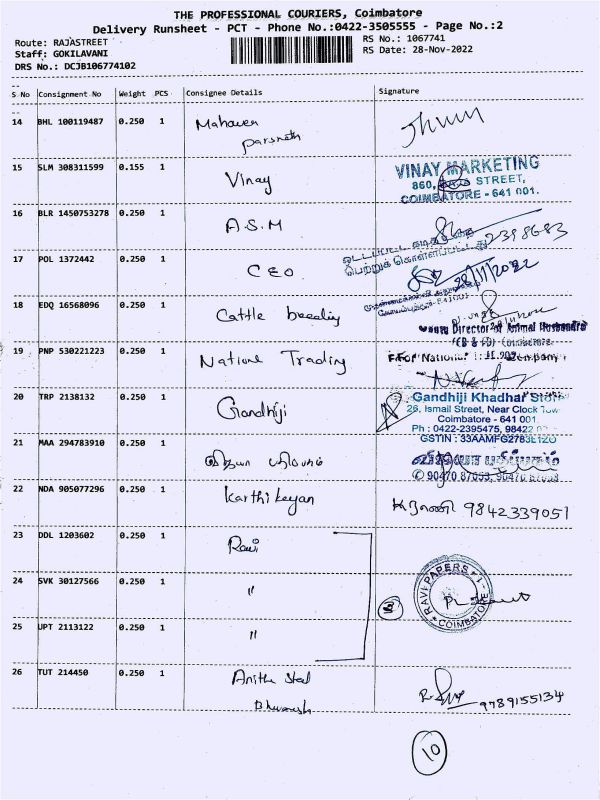 THE PROFESSIONAL COURIERS, Coimbatore
Delivery Runsheet - PCT - Phone No.:0422-3505555 - Page No.:2
Route: RAJASTREET
RS No.: 1067741
Staff: GOKILAVANI
RS Date: 28-Nov-2022
DRS No.: DCJB106774102
S No Consignment No Weight PCS Consignee Details Signature
14 BHL 100119487 0.250 1 Mahaveer
Parsnath
15 SLM 308311599 0.155 1 Vinay
VINAY MARKETING
860, STREET,
COIMBATORE - 641 001.
16 BLR 1450753278 0.250 1 A.S.M
2398683
17 POL 1372442 0.250 1 CEO
பெற்றுக் கொள்ளப்பட்டது
28/11/2022
18 EDQ 16568096 0.250 1 Cattle breeding
Director of Animal Husbandry
(CB & FD) Coimbatore
19 PNP 530221223 0.250 1 Nationl Trading
For National Company
20 TRP 2138132 0.250 1 Gandhiji
Gandhiji Khadhar Store
26, Ismail Street, Near Clock Tow
Coimbatore - 641 001.
Ph : 0422-2395475, 98422
GSTIN : 33AAMFG2783E1ZO
21 MAA 294783910 0.250 1 வித்யா பதிப்பகம்
வித்யா பதிப்பகம்
90470 87053, 90470 87058
22 NDA 905077296 0.250 1 Karthikeyan
கரானணி 9842339051
23 DDL 1203602 0.250 1 Ravi
24 SVK 30127566 0.250 1 "
RAVI PAPERS
COIMBATORE
25 UPT 2113122 0.250 1 "
26 TUT 214450 0.250 1 Anitha Steel
Bhuvanesh
9789155134
10